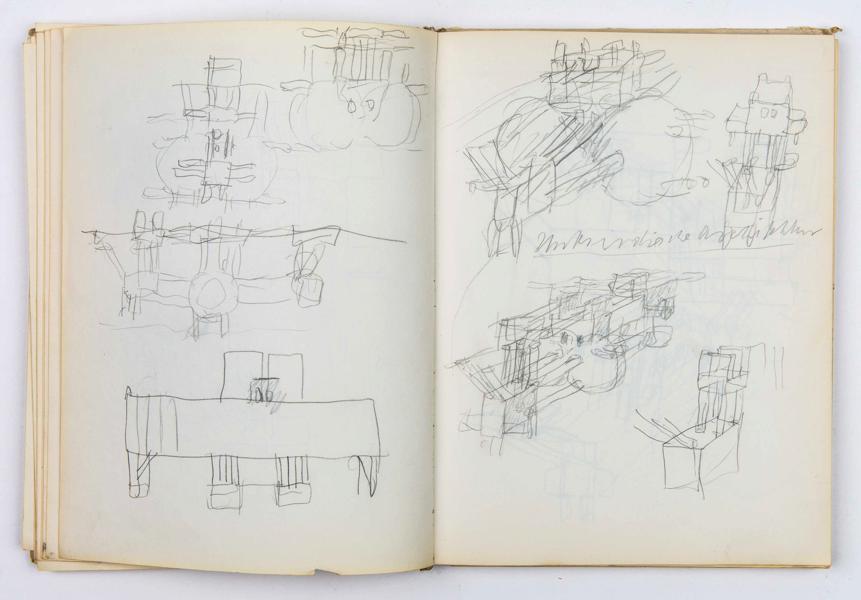 Unterirdische Architektur